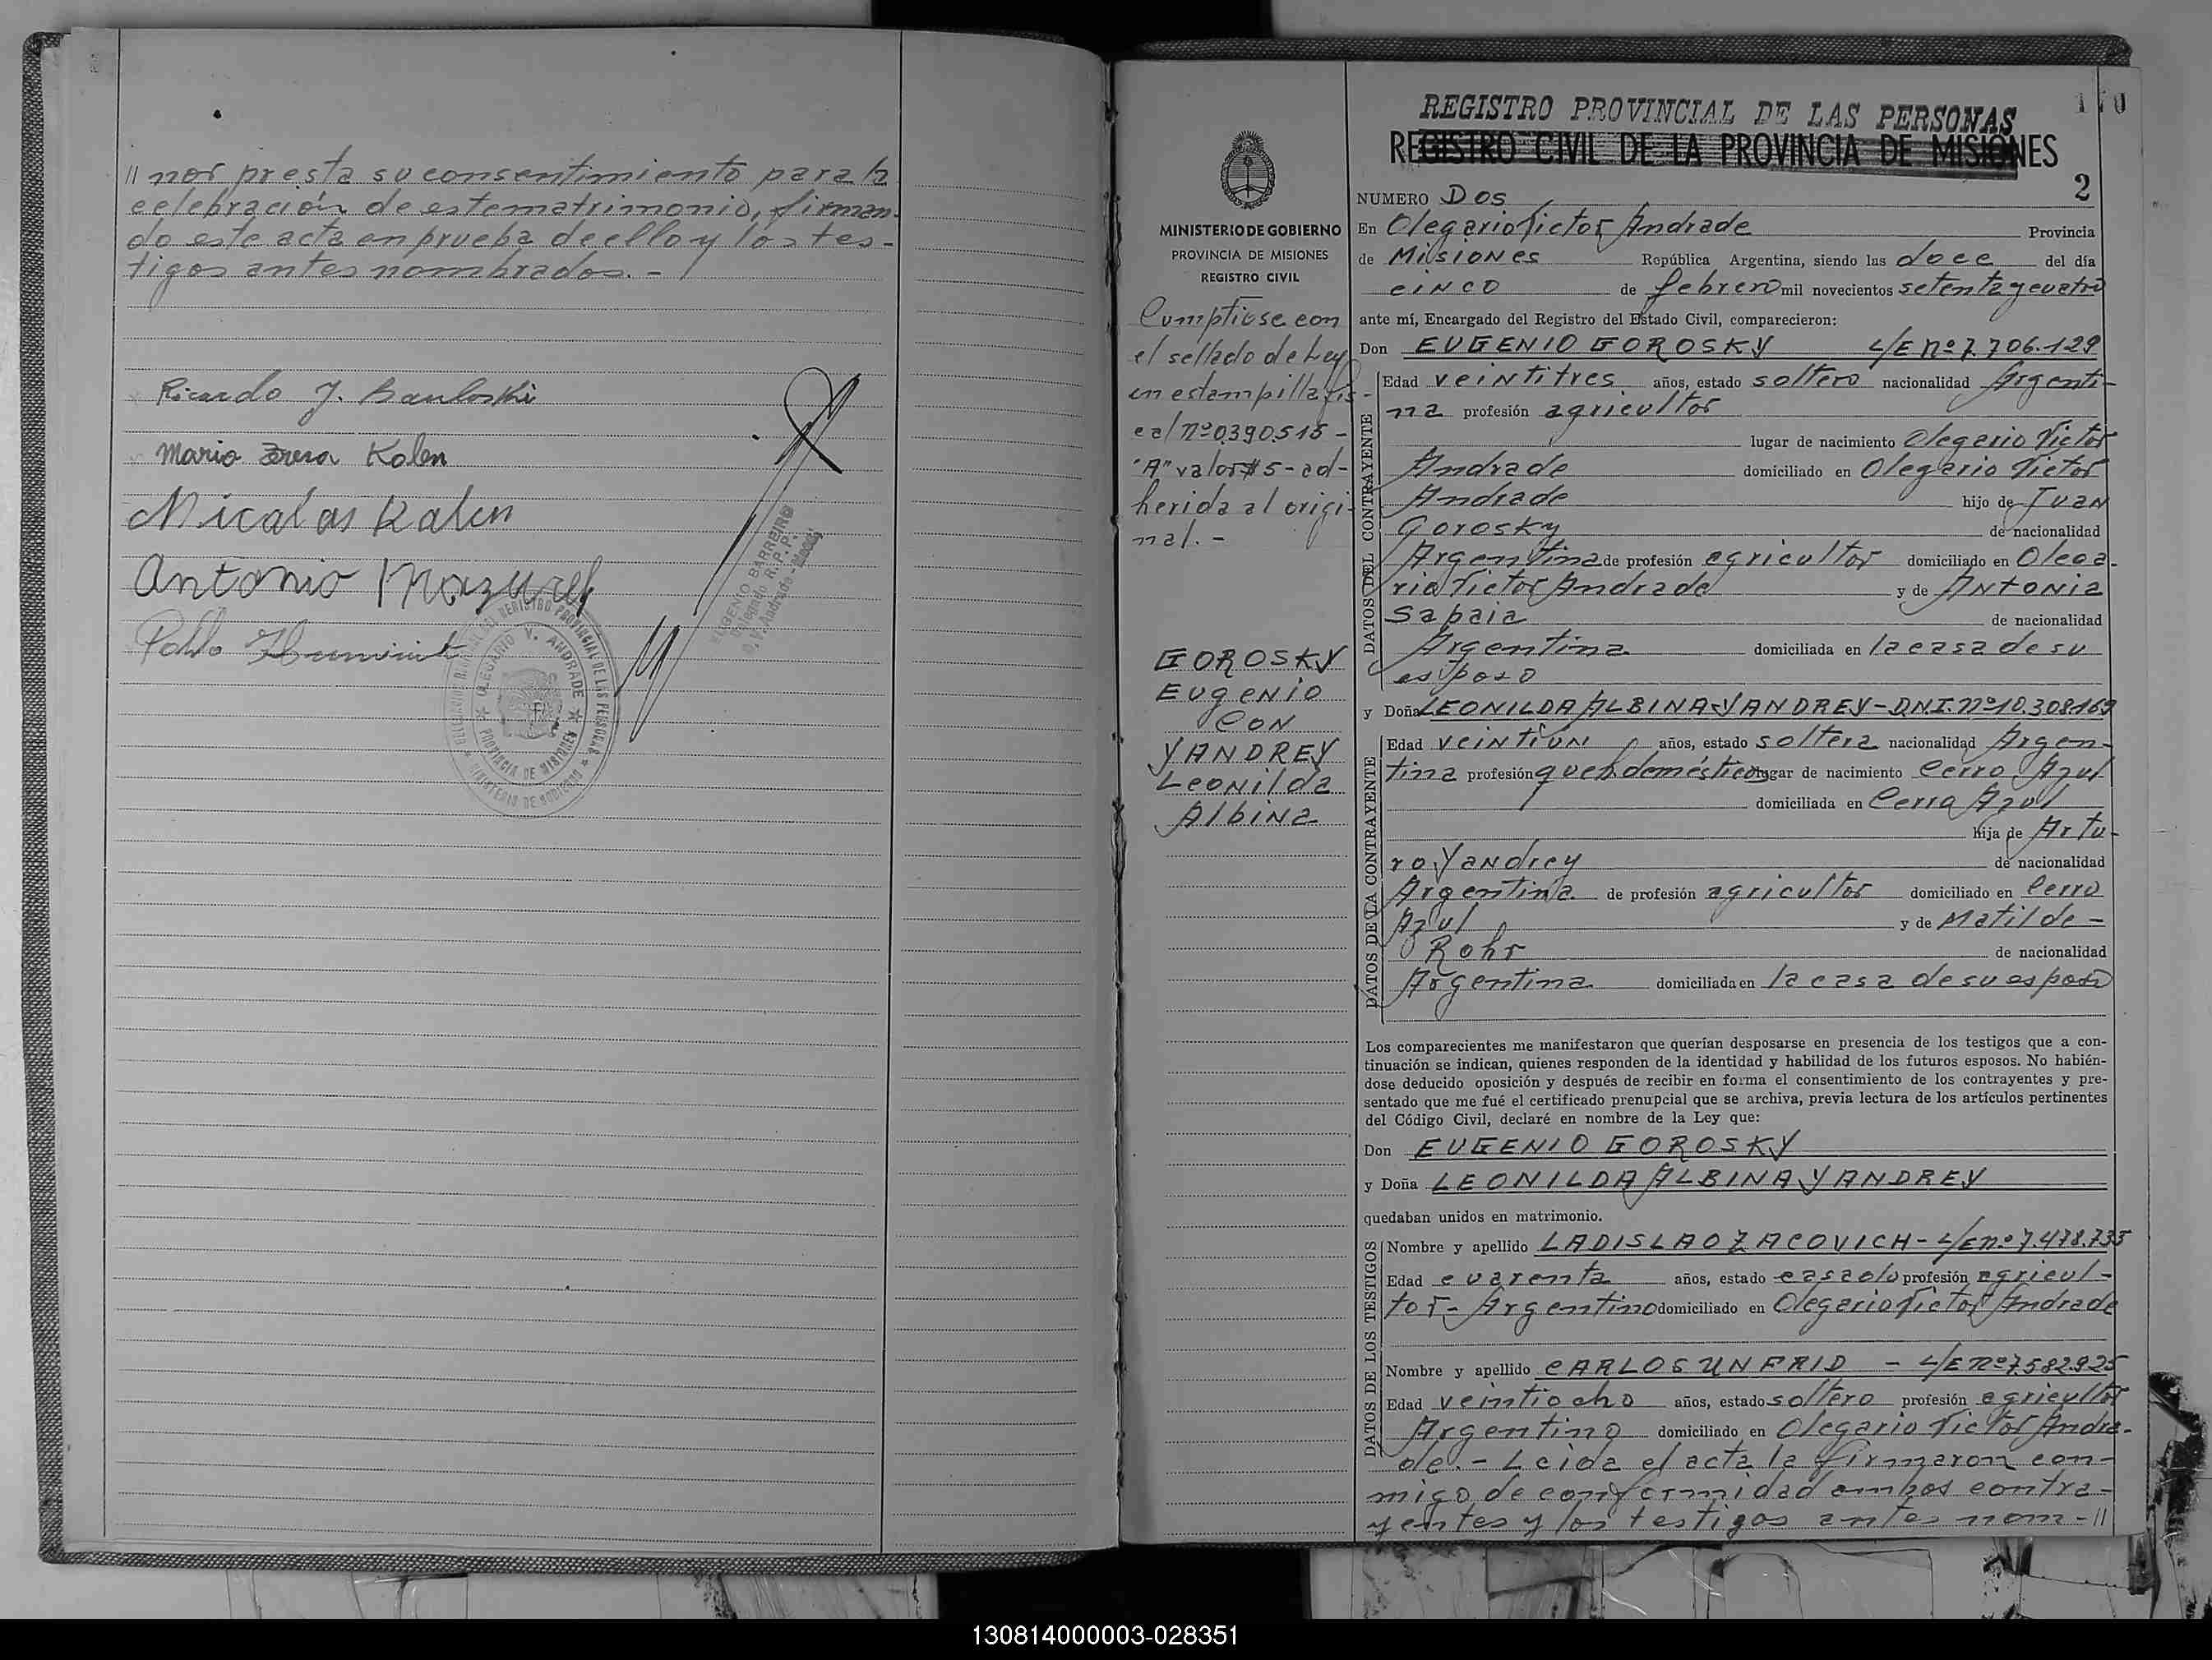 " nor presta su consentimiento para la
celebración de este matrimonio, firman-
do este acta en prueba de ello y los tes-
tigos antes nombrados. -
Ricardo J.
Maria Teresa Kalen
Nicolas Kalen
Antonio Mazurek
Pablo
EUGENIO BARREIRO
Delegado R.P.P.
O. V. Andrade - Mnes.
DELEGACION REGISTRO PROVINCIAL DE LAS PERSONAS
OLEGARIO V. ANDRADE
PROVINCIA DE MISIONES
MINISTERIO DE GOBIERNO
MINISTERIO DE GOBIERNO
PROVINCIA DE MISIONES
REGISTRO CIVIL
Cumplióse con
el sellado de Ley
en estampilla fis-
cal nº 0390.515 -
"A" valor $ 5 - ad-
herida al origi-
nal. -
GOROSKY
Eugenio
CON
YANDREY
Leonilda
Albina
170
REGISTRO PROVINCIAL DE LAS PERSONAS
REGISTRO CIVIL DE LA PROVINCIA DE MISIONES
2
NUMERO Dos
En Olegario Victor Andrade Provincia
de Misiones República Argentina, siendo las doce del día
cinco de febrero mil novecientos setenta y cuatro
ante mí, Encargado del Registro del Estado Civil, comparecieron:
DATOS DEL CONTRAYENTE
Don EUGENIO GOROSKY L/E nº 7.706.129
Edad veintitres años, estado soltero nacionalidad Argenti-
na profesión agricultor
lugar de nacimiento Olegario Victor
Andrade domiciliado en Olegario Victor
Andrade hijo de Juan
Gorosky de nacionalidad
Argentina de profesión agricultor domiciliado en Olega-
rio Victor Andrade y de Antonia
Sapaia de nacionalidad
Argentina domiciliada en la casa de su
esposo
DATOS DE LA CONTRAYENTE
y Doña LEONILDA ALBINA YANDREY - D.N.I. nº 10.308.169
Edad veintiun años, estado soltera nacionalidad Argen-
tina profesión queh. domésticos lugar de nacimiento Cerro Azul
domiciliada en Cerro Azul
hija de Artu-
ro Yandrey de nacionalidad
Argentina de profesión agricultor domiciliado en Cerro
Azul y de Matilde -
Rohr de nacionalidad
Argentina domiciliada en la casa de su esposo
Los comparecientes me manifestaron que querían desposarse en presencia de los testigos que a con-
tinuación se indican, quienes responden de la identidad y habilidad de los futuros esposos. No habién-
dose deducido oposición y después de recibir en forma el consentimiento de los contrayentes y pre-
sentado que me fué el certificado prenupcial que se archiva, previa lectura de los artículos pertinentes
del Código Civil, declaré en nombre de la Ley que:
Don EUGENIO GOROSKY
y Doña LEONILDA ALBINA YANDREY
quedaban unidos en matrimonio.
DATOS DE LOS TESTIGOS
Nombre y apellido LADISLAO ZACOVICH - L/E nº 7.478.735
Edad cuarenta años, estado casado profesión agricul-
tor - Argentino domiciliado en Olegario Victor Andrade
Nombre y apellido CARLOS UNFRID - L/E nº 7.582.925
Edad veintiocho años, estado soltero profesión agricultor
Argentino domiciliado en Olegario Victor Andra-
de. - Leida el acta la firmaron con-
migo de conformidad ambos contra-
yentes y los testigos antes nom- "
130814000003-028351